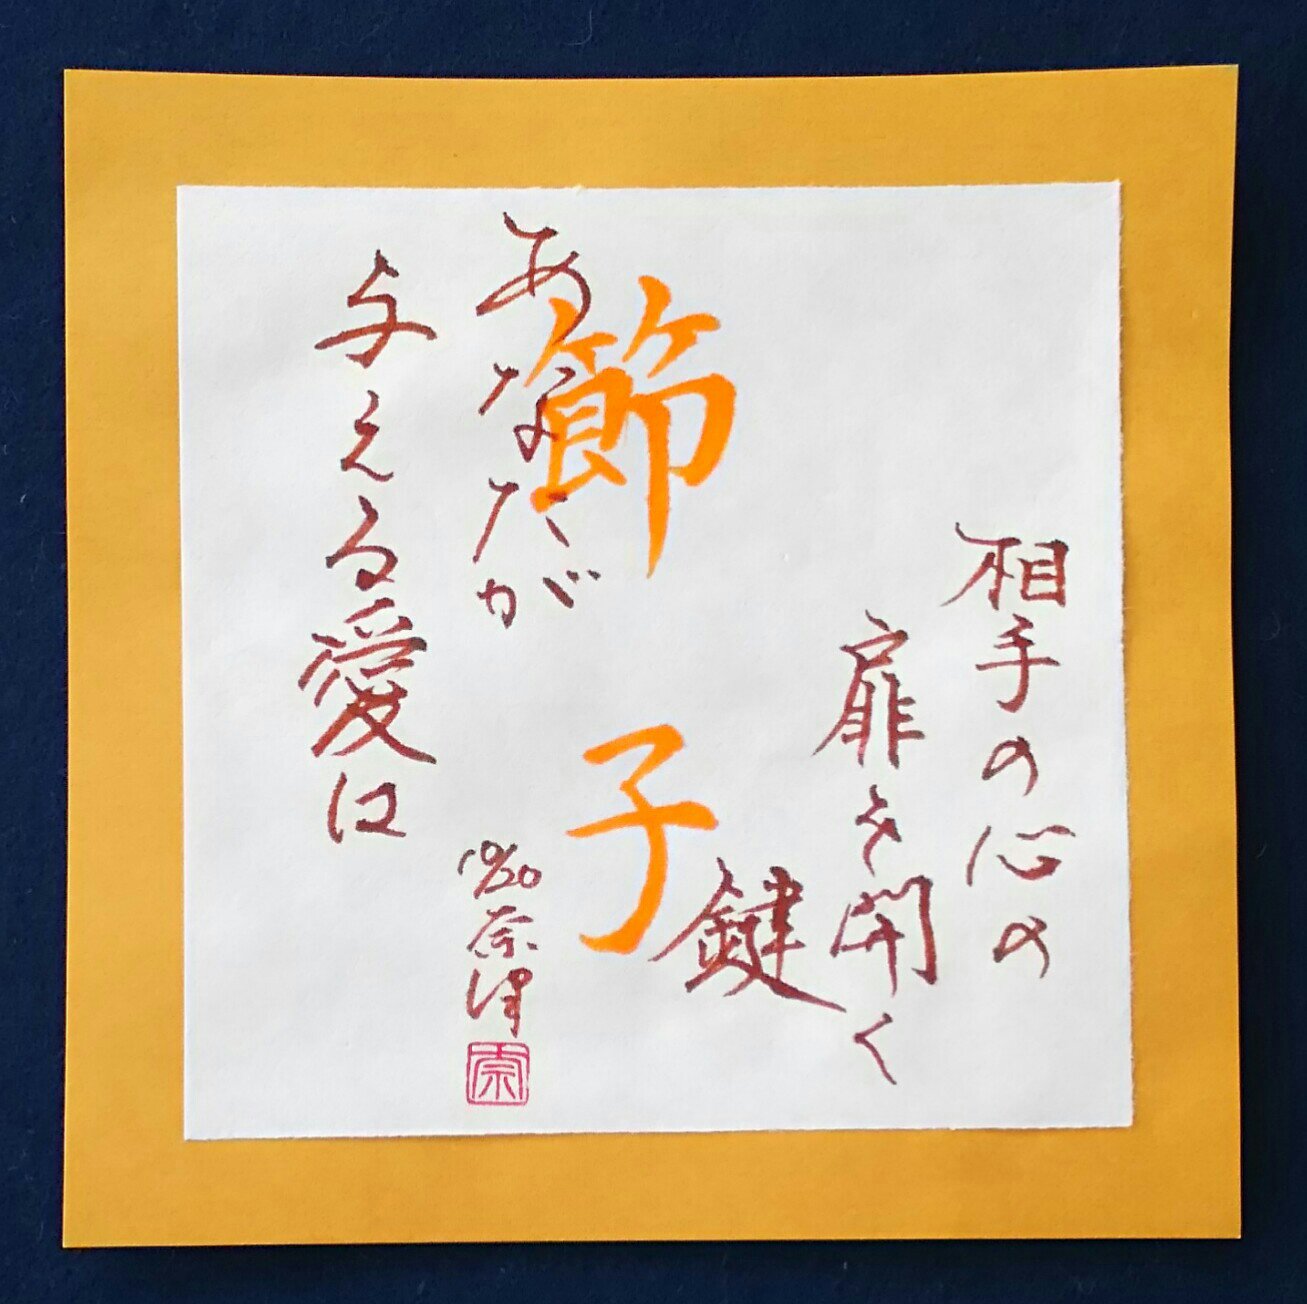 節子
あなたが
与える愛は
相手の心の
扉を開く
鍵
10/20
奈津